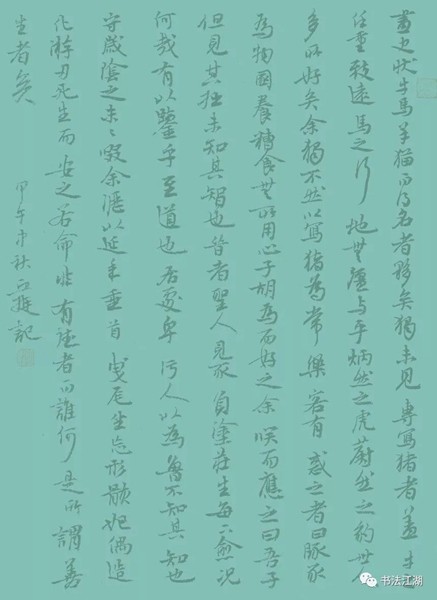 畫之狀牛馬羊猫而得名者夥矣獨未見專寫猪者蓋牛之
任重致遠馬之行地無疆與乎炳然之虎蔚然之豹世人
多所好矣余獨不然以寫猪為常樂客有惑之者曰豚豕
為物圈養糟食無所用心子胡為而好之余咲而應之曰吾子
但見其拙未知其智也昔者聖人見豕負塗莊生每下愈况
何哉有以鑒乎至道也居處卑污人以為魯不知其知也
守咸陰之未啜余瀝以延年垂首曳尾坐忘形骸偶造
化游刃死生而安之若命非有德者而誰何是所謂善
生者矣
甲午中秋記
书法江湖